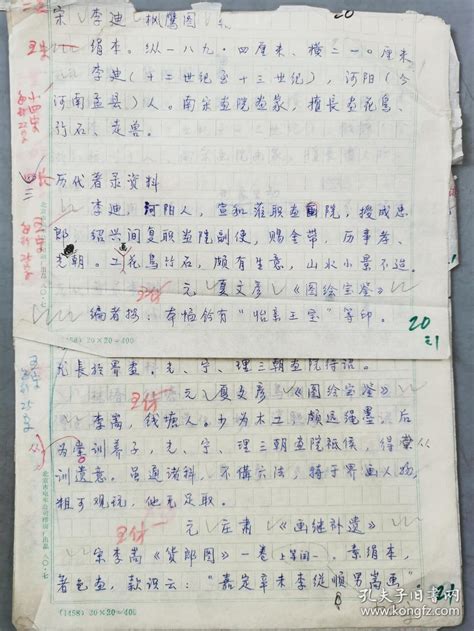 宋 李迪 枫鹰图 轴
绢本。纵一八九·四厘米、横二一〇厘米
李迪(十二世纪至十三世纪),河阳(今
河南孟县)人。南宋画院画家,擅长画花鸟、
竹石、走兽。
历代著录资料
李迪,河阳人,宣和莅职画院,授成忠
郎,绍兴间复职画院副使,赐金带,历事孝、
光朝。工花鸟竹石,颇有生意,山水小景不逮。
元 夏文彦 《图绘宝鉴》
编者按:本幅钤有“怡亲王宝”等印。
20
(1458) 20×20=400
尤长於界画,光、宁、理三朝画院待诏。
元 夏文彦 《图绘宝鉴》
李嵩,钱塘人。少为木工,颇远绳墨,后
为 训养子,光、宁、理三朝画院祗候,得
训遗意。虽通诸科,不备六法,特于界画人物
粗可观玩,他无足取。
元 庄肃 《画继补遗》
宋李嵩《货郎图》一卷 上等 。素绢本,
著色画,款识云:“嘉定辛未李从顺男嵩画”
(1458) 20×20=400
21
孔夫子旧书网
www.kongfz.com